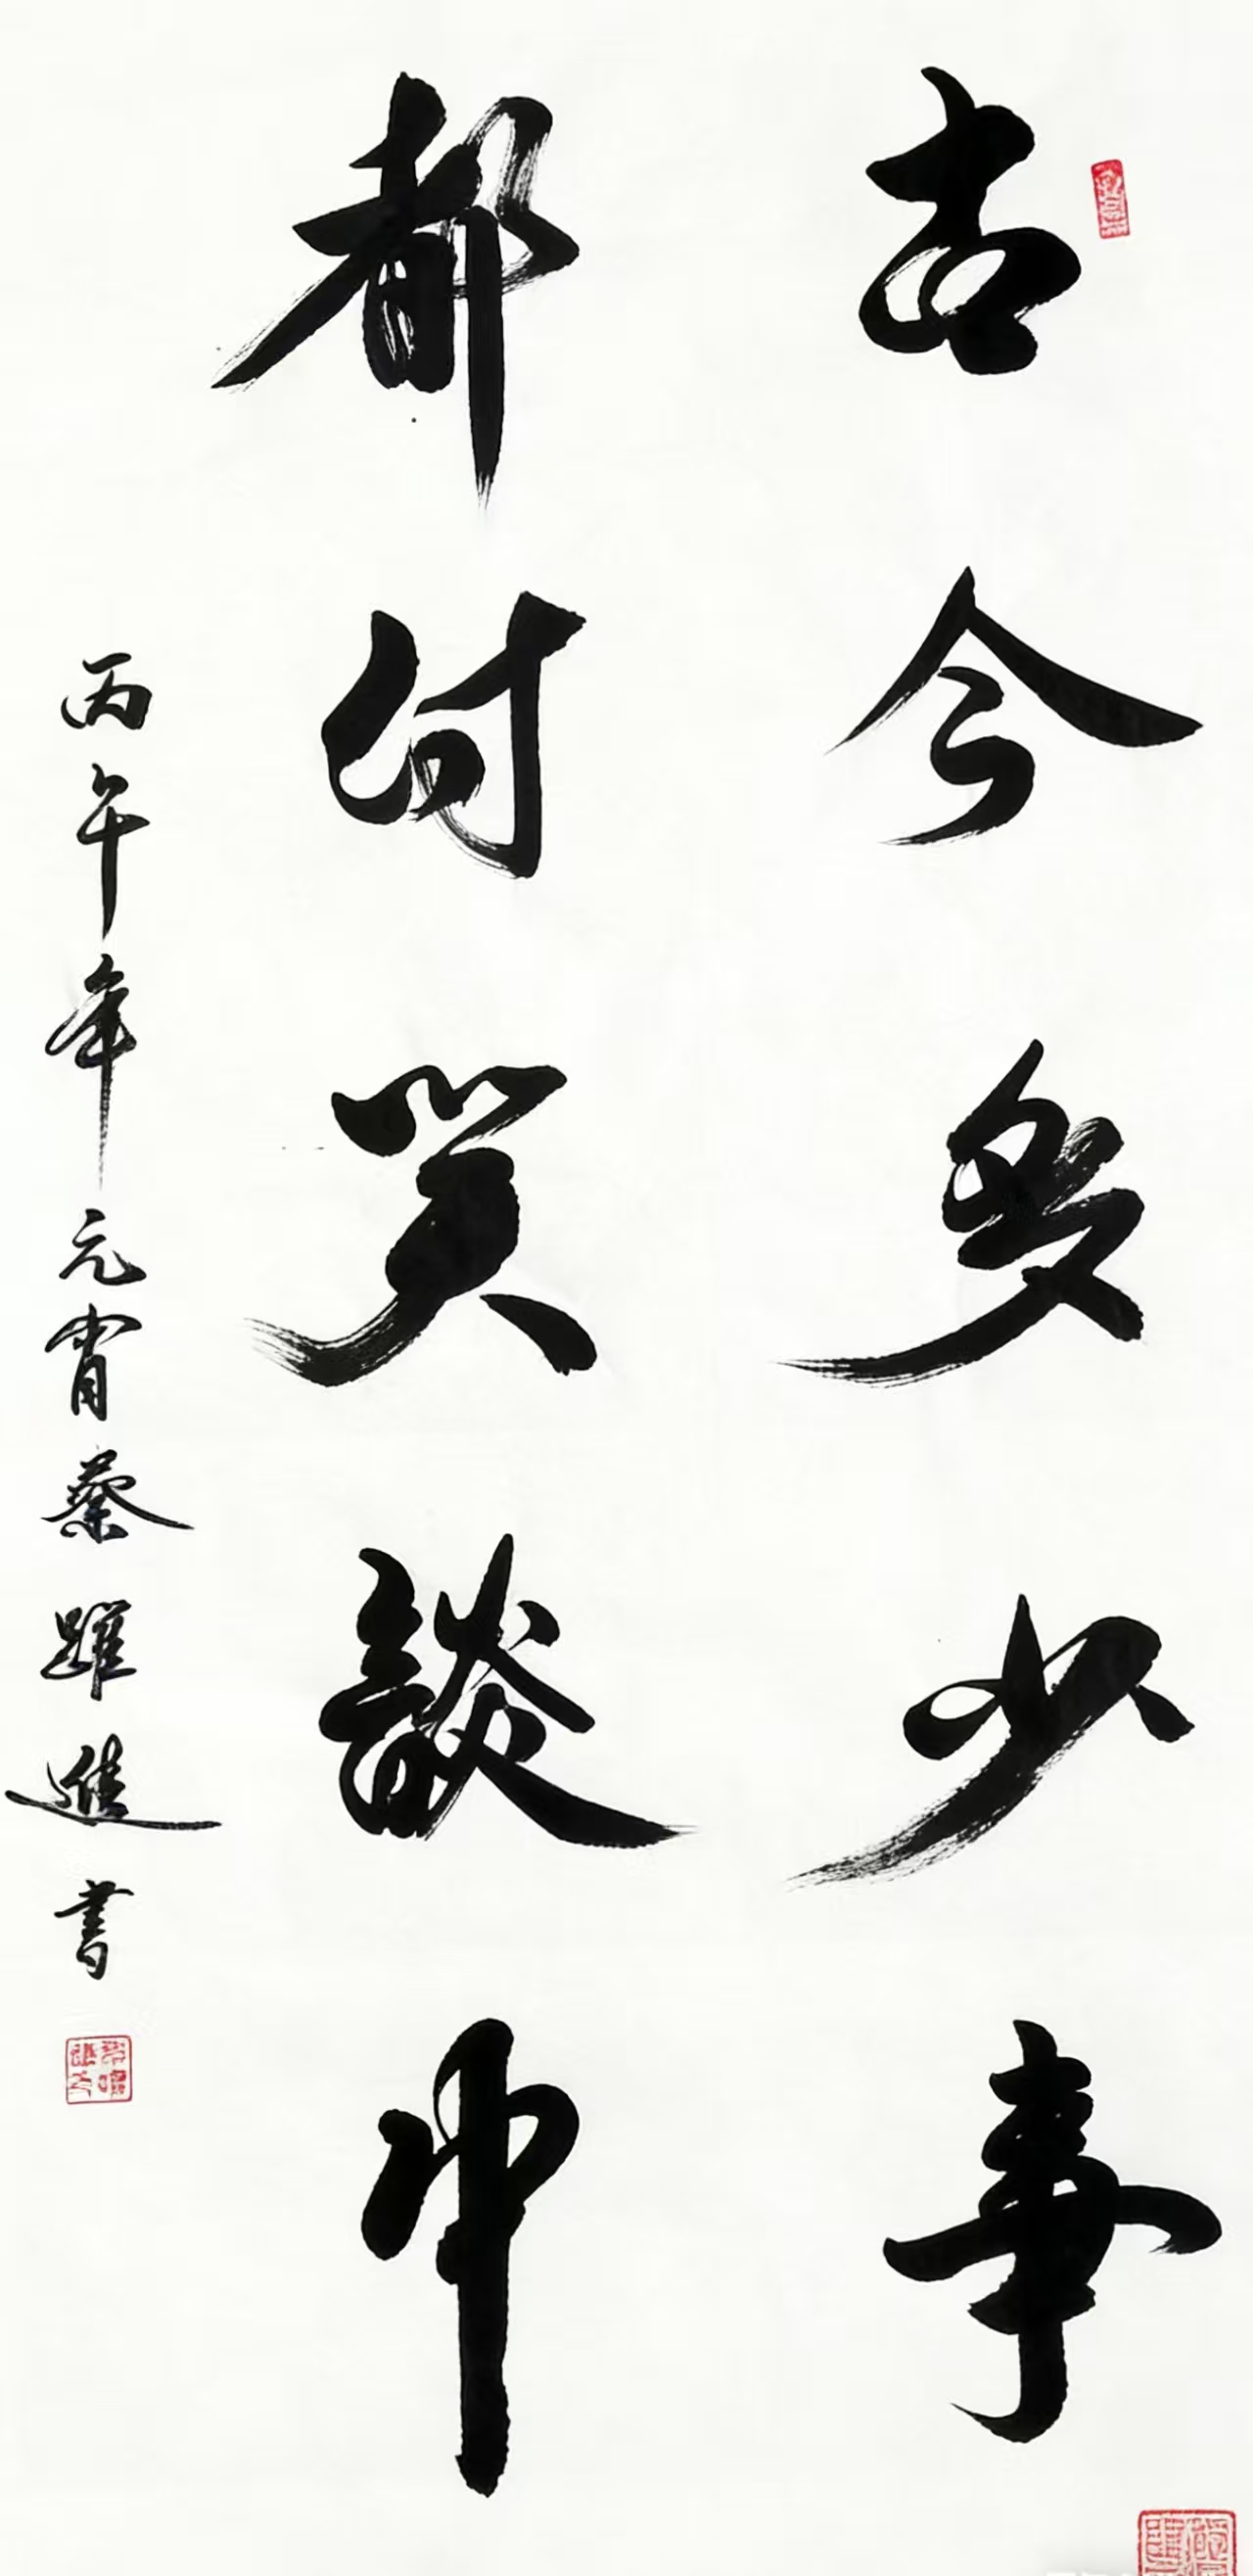 古今多少事
都付笑談中
丙午年元宵蔡躍進書